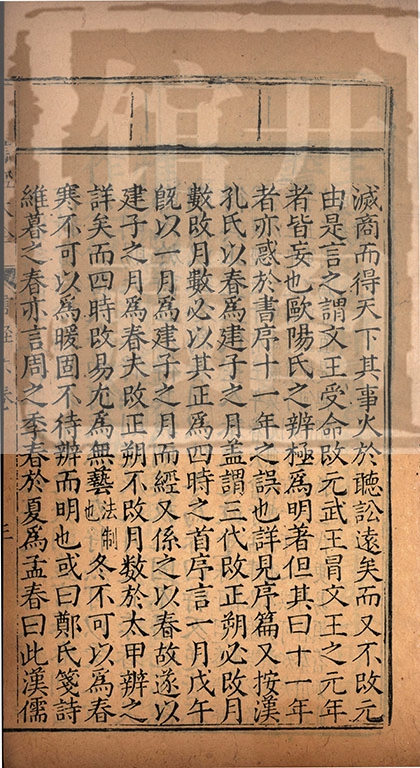 滅商而得天下其事大於聽訟遠矣而又不改元
由是言之謂文王受命改元武王冒文王之元年
者皆妄也歐陽氏之辨極爲明著但其曰十一年
者亦惑於書序十一年之誤也詳見序篇又按漢
孔氏以春爲建子之月盖謂三代改正朔必改月
數改月數必以其正爲四時之首序言一月戊午
旣以一月爲建子之月而經又係之以春故遂以
建子之月爲春夫改正朔不改月數於太甲辨之
詳矣而四時改易尤爲無藝法制也冬不可以爲春
寒不可以爲暖固不待辨而明也或曰鄭氏箋詩
維暮之春亦言周之季春於夏爲孟春曰此漢儒